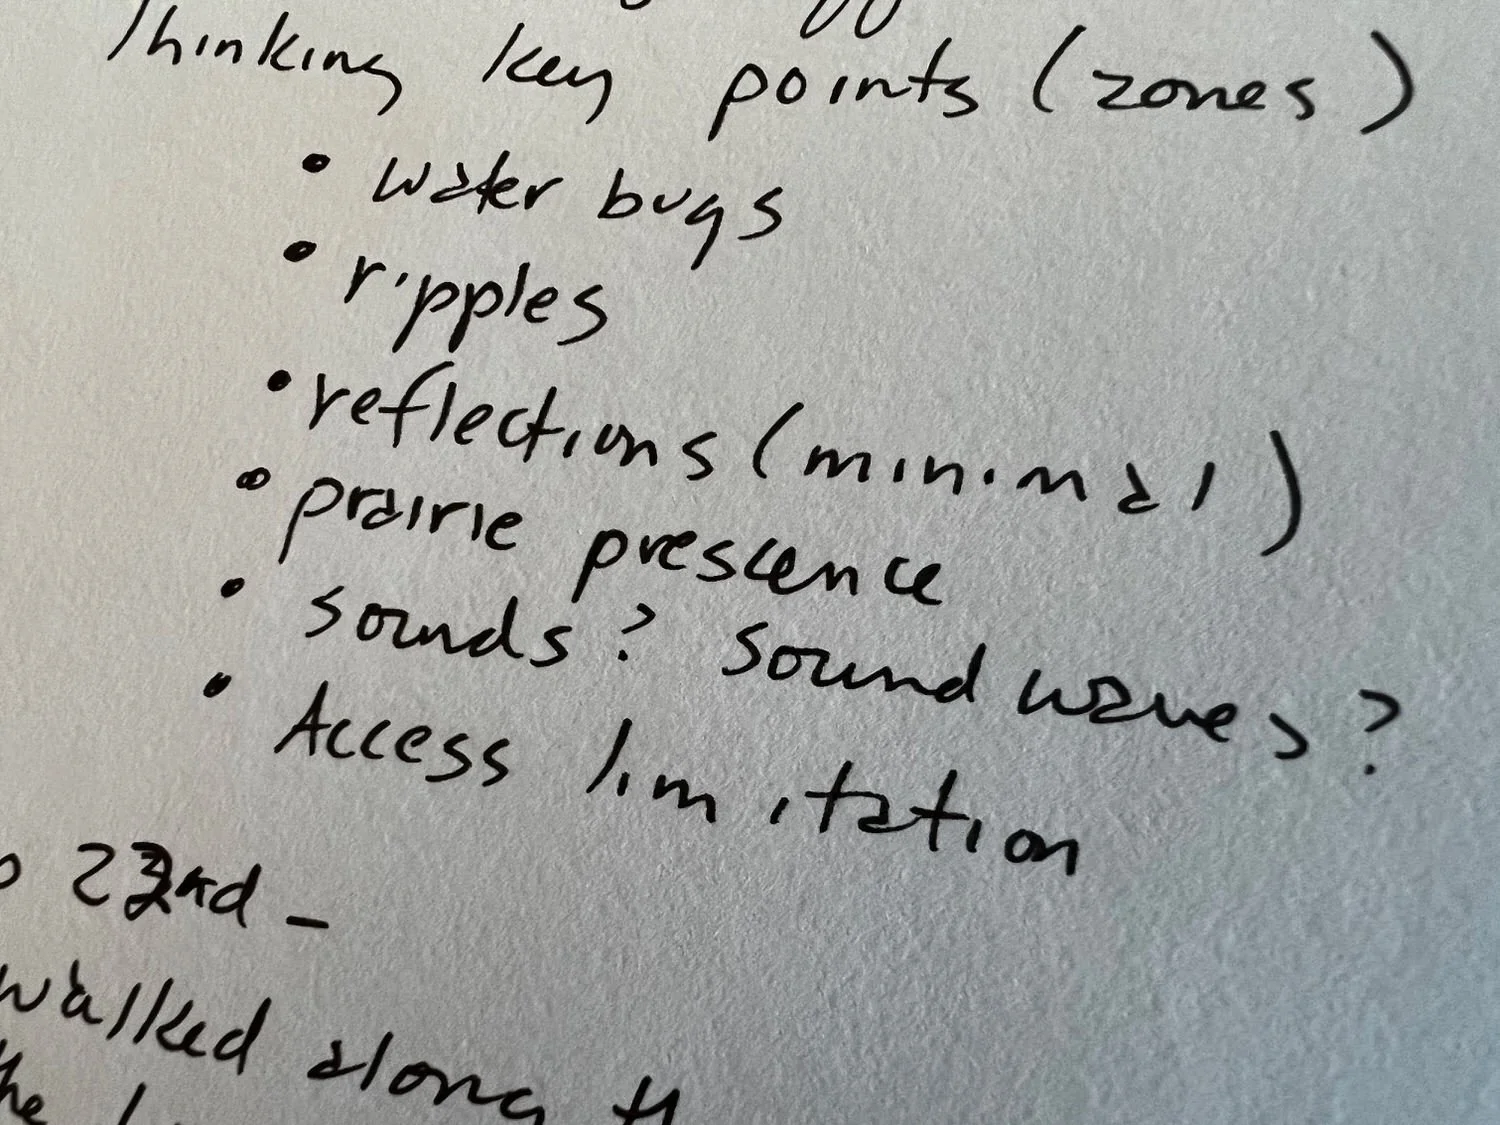 Thinking key points (zones)
• water bugs
• ripples
• reflections (minimal)
• prairie prescence
• sounds? sound waves?
• Access limitation
22nd –
walked along th
the